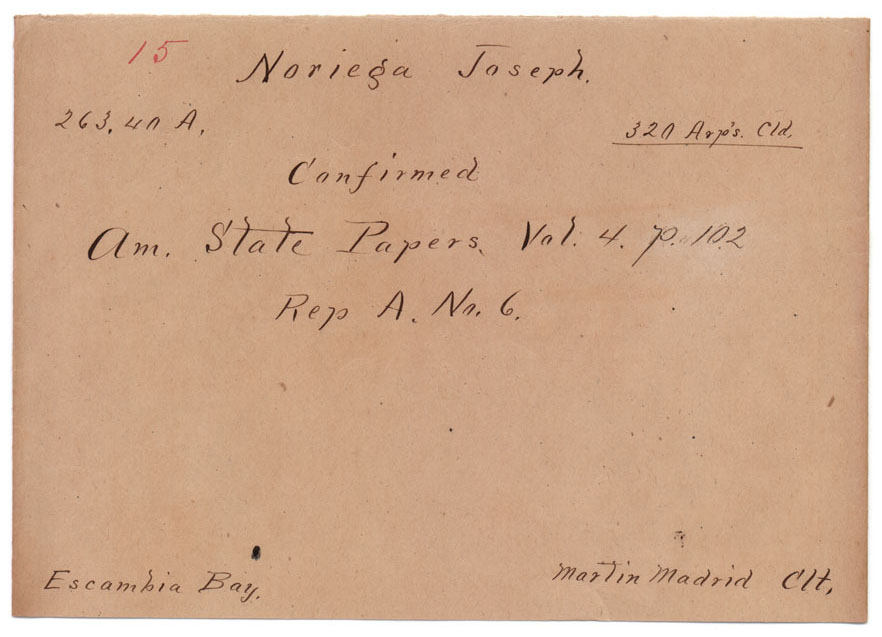 15
Noriega Joseph.
263.40 A.
320 Arp's. Cld.
Confirmed
Am. State Papers, Vol. 4. p. 102
Rep A. No. 6.
Escambia Bay.
Martin Madrid Clt.